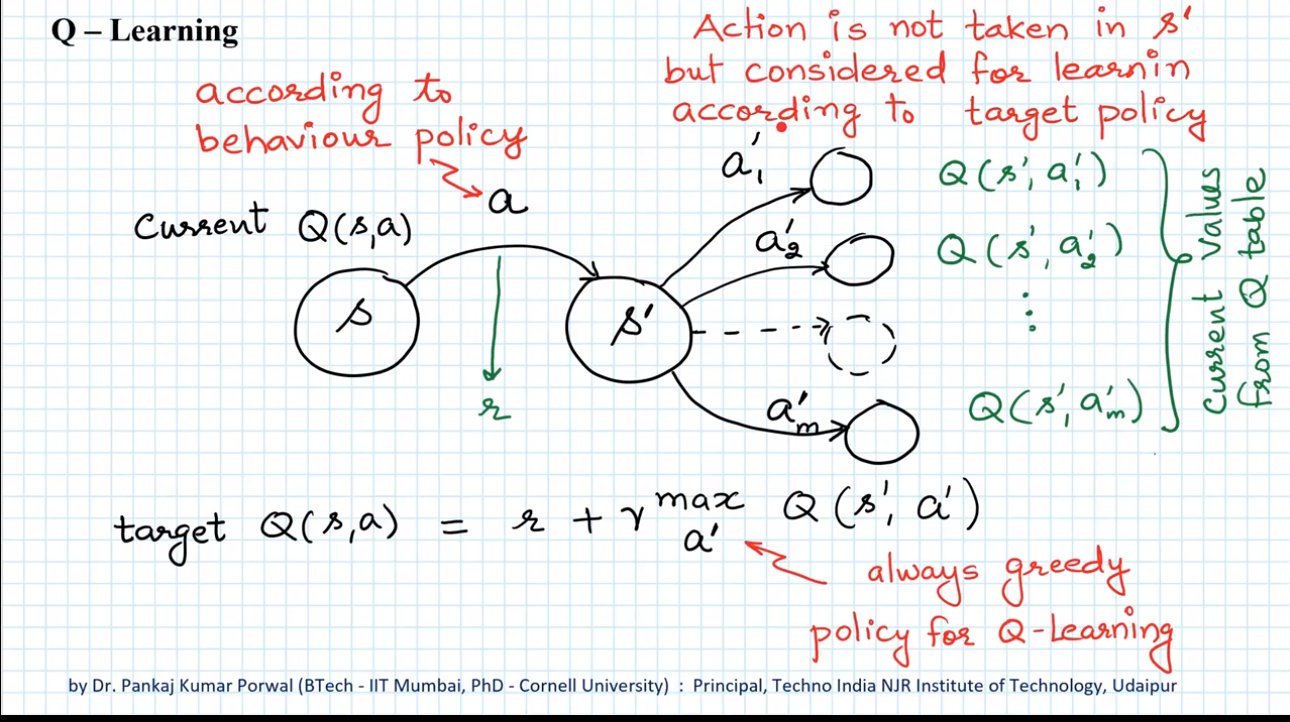 Q – Learning
Action is not taken in s'
but considered for learnin
according to target policy
according to
behaviour policy
a
Current Q(s,a)
s
r
s'
a'₁
a'₂
a'ₘ
Q(s', a'₁)
Q(s', a'₂)
⋮
Q(s', a'ₘ)
Current Values
from Q table
target Q(s,a) = r + γ max Q(s', a')
a'
always greedy
policy for Q-Learning
by Dr. Pankaj Kumar Porwal (BTech - IIT Mumbai, PhD - Cornell University) : Principal, Techno India NJR Institute of Technology, Udaipur